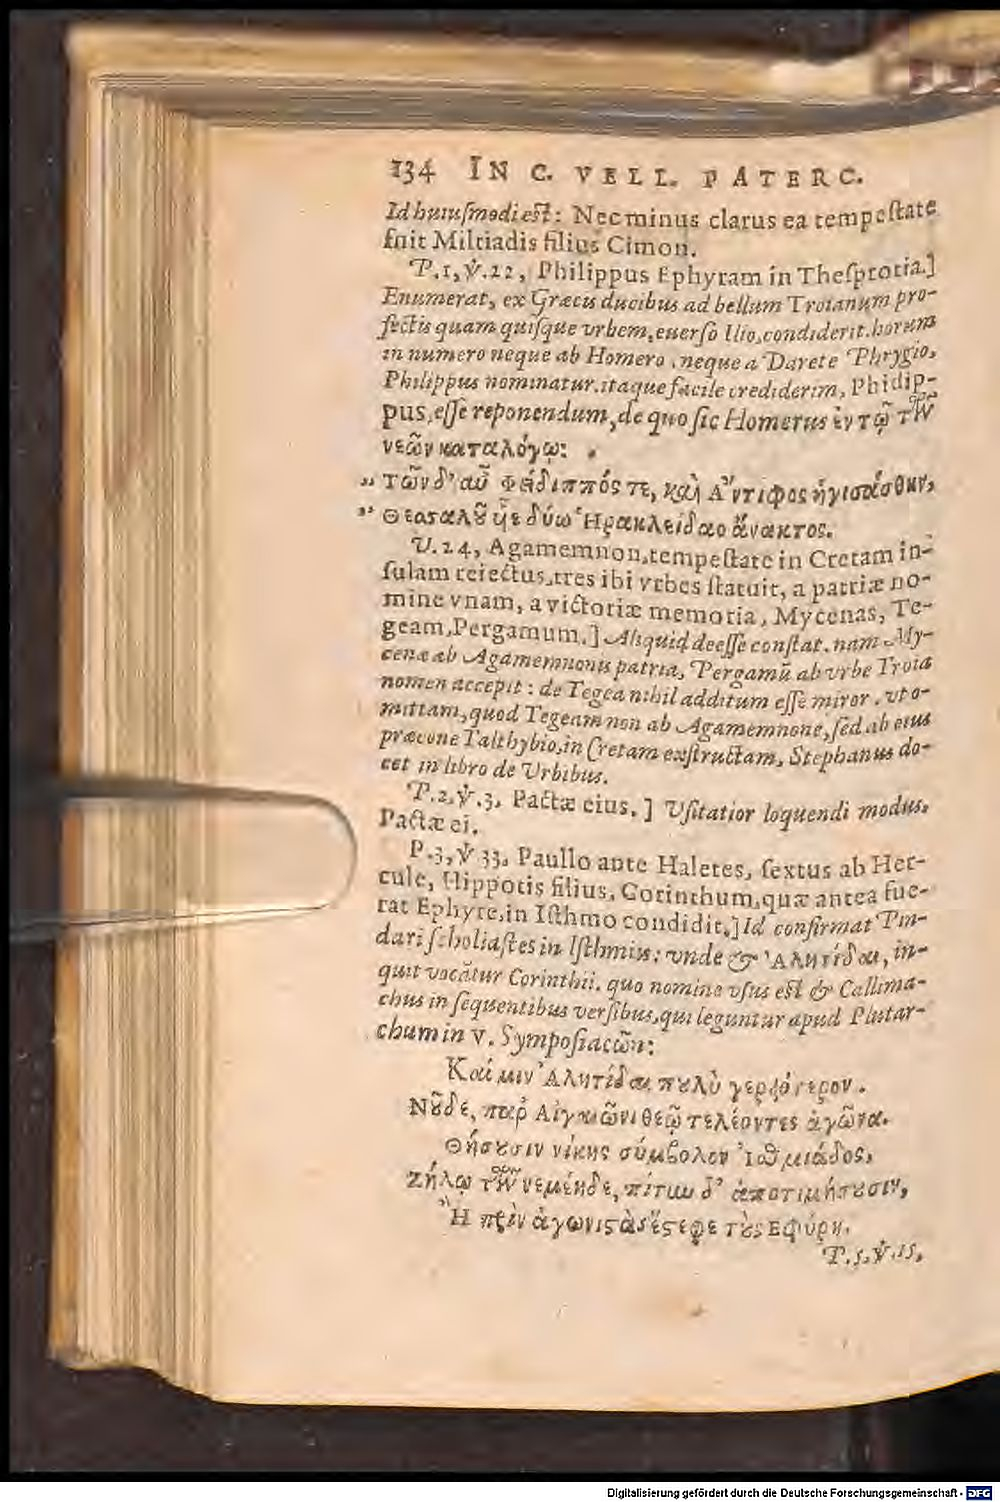 134 IN C. VELL. PATERC.
Id huiusmodi est: Nec minus clarus ea tempestate
fuit Miltiadis filius Cimon.
P.1, ℣.22, Philippus Ephyram in Thesprotia.]
Enumerat, ex Græcis ducibus ad bellum Troianum pro-
fectis quam quisque vrbem, euerso Ilio, condiderit. horum
in numero neque ab Homero, neque a Darete Phrygio,
Philippus nominatur. itaque facile crediderim, Phidip-
pus, esse reponendum, de quo sic Homerus ἐν τῷ τῶν
νεῶν καταλόγῳ:
„ τῶν δ' αὖ Φείδιππός τε, καὶ Ἄντιφος ἡγησάσθην,
„ Θεσσαλοῦ ἧε δύω Ἡρακλείδαο ἄνακτος.
V.24, Agamemnon, tempestate in Cretam in-
sulam reiectus, tres ibi vrbes statuit, a patriæ no-
mine vnam, a victoriæ memoria, Mycenas, Te-
geam, Pergamum.] Aliquid deesse constat. nam My-
cenæ ab Agamemnonis patria, Pergamū ab vrbe Troia
nomen accepit: de Tegea nihil additum esse miror. vt o-
mittam, quod Tegeam non ab Agamemnone, sed ab eius
præcone Talthybio, in Cretam exstructam, Stephanus do-
cet in libro de Vrbibus.
P.2, ℣.3, Pactæ eius.] Vsitatior loquendi modus,
Pactæ ei.
P.3, ℣ 33, Paullo ante Haletes, sextus ab Her-
cule, Hippotis filius, Corinthum, quæ antea fue-
rat Ephyre, in Isthmo condidit.] Id confirmat Pin-
dari scholiastes in Isthmiis: vnde & Ἀλητίδαι, in-
quit vocātur Corinthii. quo nomine vsus est & Callima-
chus in sequentibus versibus, qui leguntur apud Plutar-
chum in V. Symposiacῶν:
Καί μιν Ἀλητίδαι πουλὺ γεραιότερον.
Νοῦδε, παρ' Αἰγαιῶνι θεῷ τελέοντες ἀγῶνα.
Θήσουσιν νίκης σύμβολον Ἰσθμιάδος,
Ζήλῳ τῶν νεμέηνδε, πίτυν δ' ἀποτιμήσουσιν,
Ἣ πρὶν ἀγωνιστὰς ἔστεφε τοὺς Εφύρη.
P.5, ℣.15,
Digitalisierung gefördert durch die Deutsche Forschungsgemeinschaft - DFG